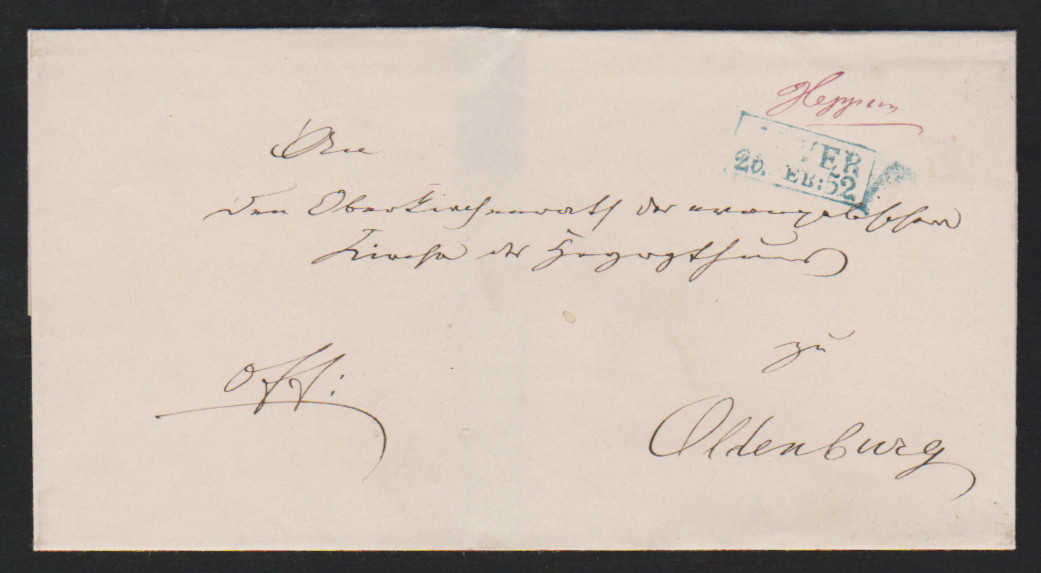 Heppens
VER
26. EB: 52
An
den Oberkirchenrath der evangelischen
Kirche des Herzogthums
zu
Oldenburg
off: